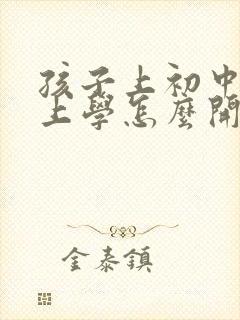 孩子上初中
上學怎麼開
金泰鎮